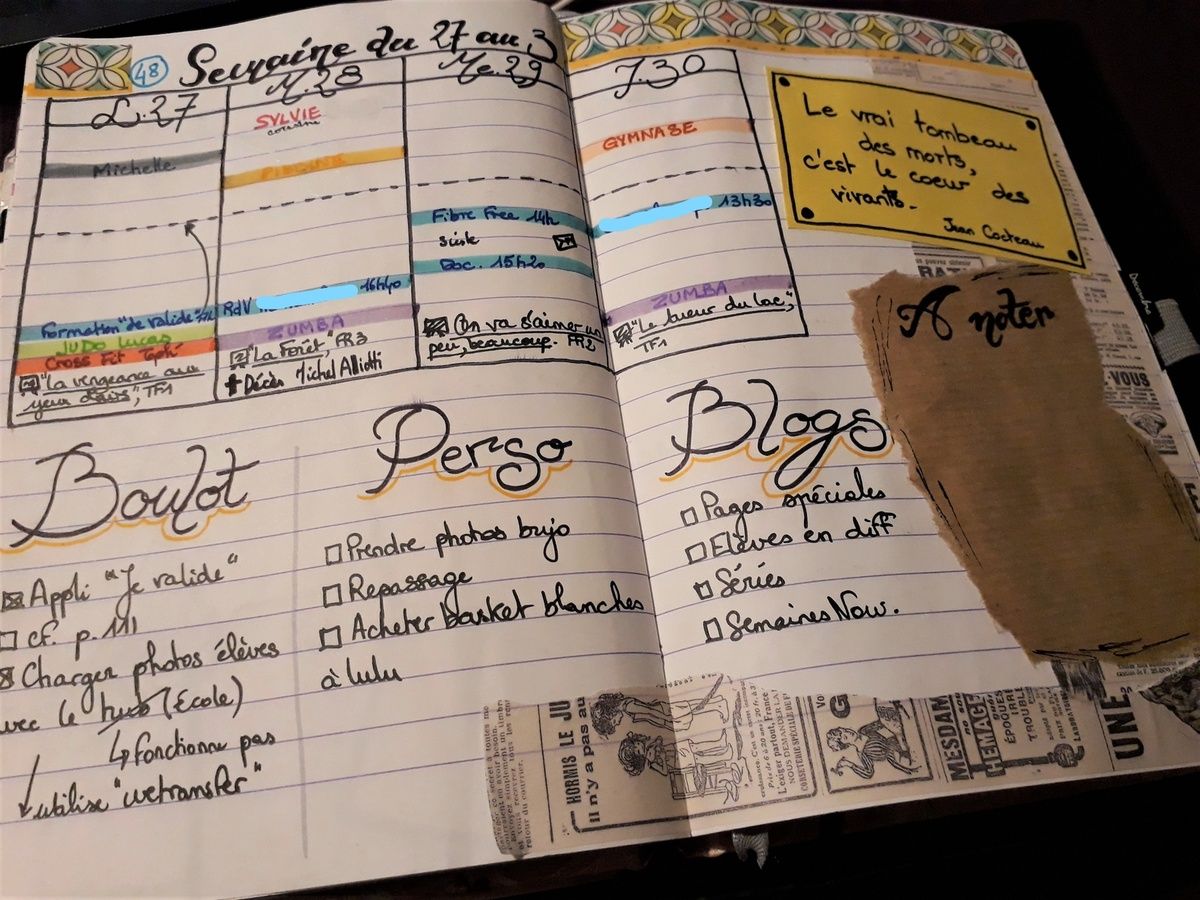 48
Semaine du 27 au 3
L.27
Michelle
Formation "Je valide"
JUDO Lucas
Cross Fit Toph'
"La vengeance aux
yeux clairs", TF1
M.28
SYLVIE
cousine
PISCINE
RdV
16h40
ZUMBA
"La Forêt", FR3
Décès Michel Alliotti
Me.29
Fibre Free 14h
sieste
Doc. 15h20
On va s'aimer un
peu, beaucoup. FR2
J.30
GYMNASE
13h30
ZUMBA
"Le tueur du lac",
TF1
Le vrai tombeau
des morts,
c'est le coeur des
vivants.
Jean Cocteau
A noter
Boulot
Appli "Je valide"
cf. p.111
Charger photos élèves
avec le hub (École)
↳ fonctionne pas
utilise "wetransfer"
Perso
Prendre photos bujo
Repassage
Acheter basket blanches
à lulu
Blogs
Pages spéciales
Elèves en diff
Séries
Semaines Now.
HORMIS LE JU
Il n'y a pas au
MESDAM
HEMAC
ÉPOQUES
IRRÉ
TROU
LABORATOI
UNE
RAT
-VOUS